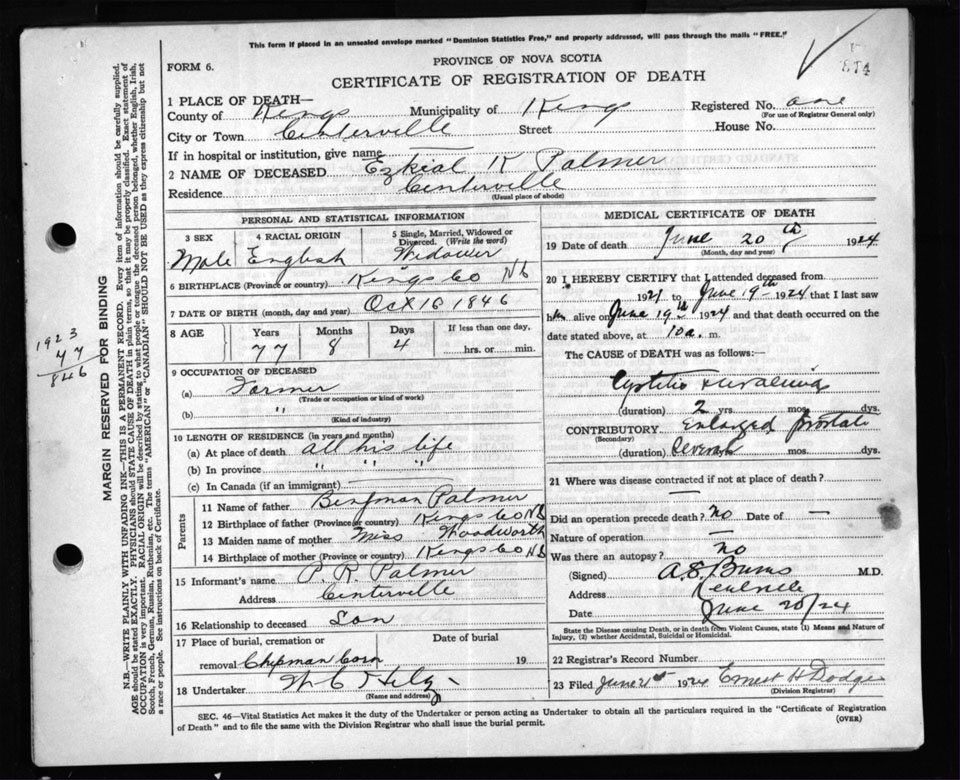 This form if placed in an unsealed envelope marked "Dominion Statistics Free," and properly addressed, will pass through the mails "FREE."
874
FORM 6.
PROVINCE OF NOVA SCOTIA
CERTIFICATE OF REGISTRATION OF DEATH
1 PLACE OF DEATH—
County of Kings Municipality of Kings Registered No. one
(For use of Registrar General only)
City or Town Centerville Street House No.
If in hospital or institution, give name
2 NAME OF DECEASED Ezkial K Palmer
Residence Centerville
(Usual place of abode)
PERSONAL AND STATISTICAL INFORMATION
3 SEX 4 RACIAL ORIGIN 5 Single, Married, Widowed or Divorced. (Write the word)
Male English Widower
6 BIRTHPLACE (Province or country) Kings Co NS
7 DATE OF BIRTH (month, day and year) Oct 16 1846
8 AGE Years Months Days If less than one day,
77 8 4 hrs. or min.
9 OCCUPATION OF DECEASED
(a) Farmer
(Trade or occupation or kind of work)
(b) "
(Kind of industry)
10 LENGTH OF RESIDENCE (in years and months)
(a) At place of death all his life
(b) In province " " "
(c) In Canada (if an immigrant)
Parents
11 Name of father Benjman Palmer
12 Birthplace of father (Province or country) Kings Co NS
13 Maiden name of mother Miss Woodworth
14 Birthplace of mother (Province or country) Kings Co NS
15 Informant's name P. R. Palmer
Address Centerville
16 Relationship to deceased Son
17 Place of burial, cremation or Date of burial
removal Chipman Corn 19
18 Undertaker
(Name and address)
MEDICAL CERTIFICATE OF DEATH
19 Date of death June 20th 1924
(Month, day and year)
20 I HEREBY CERTIFY that I attended deceased from
1921 to June 19th 1924 that I last saw
him alive on June 19th 1924 and that death occurred on the
date stated above, at 10 a. m.
The CAUSE OF DEATH was as follows:
Cystitis
(duration) 2 yrs. mos. dys.
CONTRIBUTORY Enlarged prostate
(Secondary)
(duration) Several mos. dys.
21 Where was disease contracted if not at place of death?
Did an operation precede death? no Date of —
Nature of operation —
Was there an autopsy? no
(Signed) A. S. Burns M.D.
Address Kentville
Date June 20/24
State the Disease causing Death, or in death from Violent Causes, state (1) Means and Nature of Injury, (2) whether Accidental, Suicidal or Homicidal.
22 Registrar's Record Number
23 Filed June 21st 1924 Ernest H Dodge
(Division Registrar)
SEC. 46—Vital Statistics Act makes it the duty of the Undertaker or person acting as Undertaker to obtain all the particulars required in the "Certificate of Registration
of Death" and to file the same with the Division Registrar who shall issue the burial permit.
(OVER)
MARGIN RESERVED FOR BINDING
N.B.—WRITE PLAINLY WITH UNFADING INK—THIS IS A PERMANENT RECORD. Every item of information should be carefully supplied.
AGE should be stated EXACTLY. PHYSICIANS should STATE CAUSE OF DEATH in plain terms, so that it may be properly classified. Exact statement of
OCCUPATION is very important. RACIAL ORIGIN will be described by stating to what people or tongue the deceased person belonged, whether English, Irish,
Scotch, French, German, Russian, Ruthenian, etc. The terms "AMERICAN" or "CANADIAN" SHOULD NOT BE USED as they express citizenship but not
a race or people. See instructions on back of Certificate.
1923
77
846